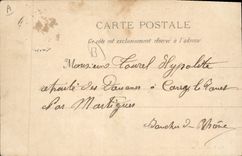 A
CARTE POSTALE
Ce côté est exclusivement réservé à l'adresse
B
Monsieur Tourel Hyppolite
retraité des Douanes à Carry le Rouet
Par Martigues
Bouches du Rhône